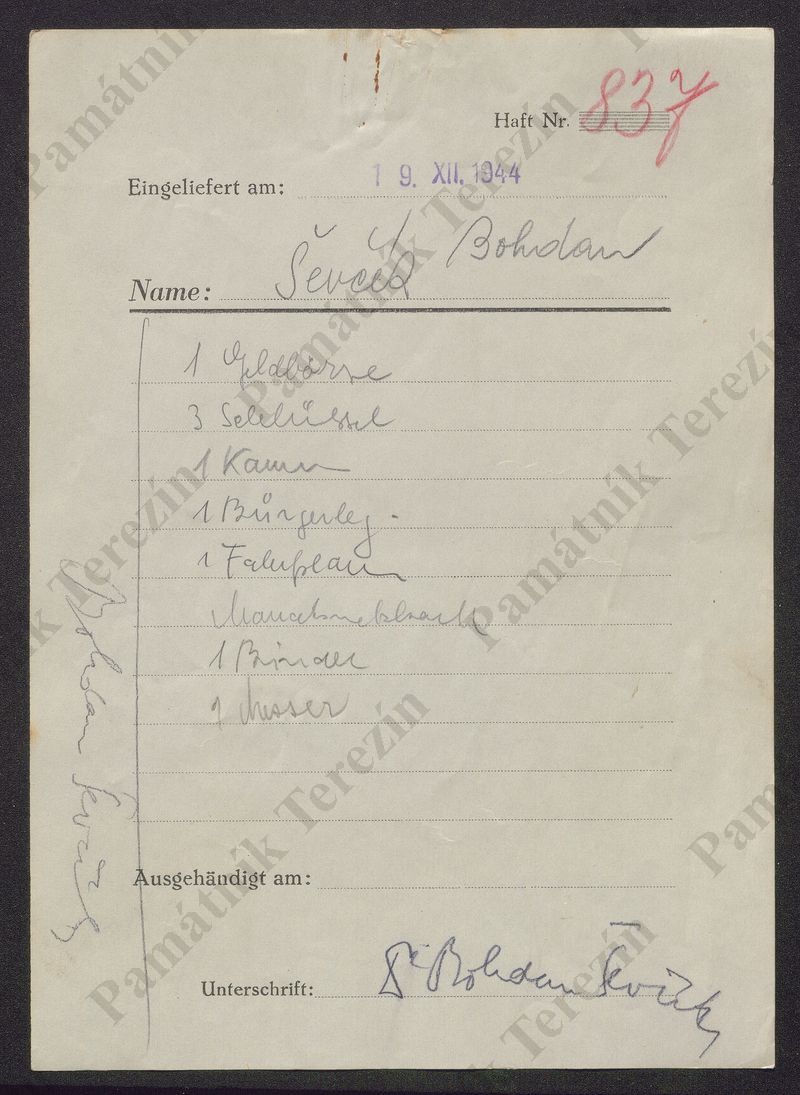 Haft Nr. 837
Eingeliefert am: 19. XII. 1944
Name: Ševčík Bohdan
1 Geldbörse
3 Schlüssel
1 Kamm
1 Bürgerleg.
1 Fahrplan
1 Binder
1 Messer
Ausgehändigt am:
Unterschrift: Dr Bohdan Ševčík
Bohdan Ševčík
Památník Terezín